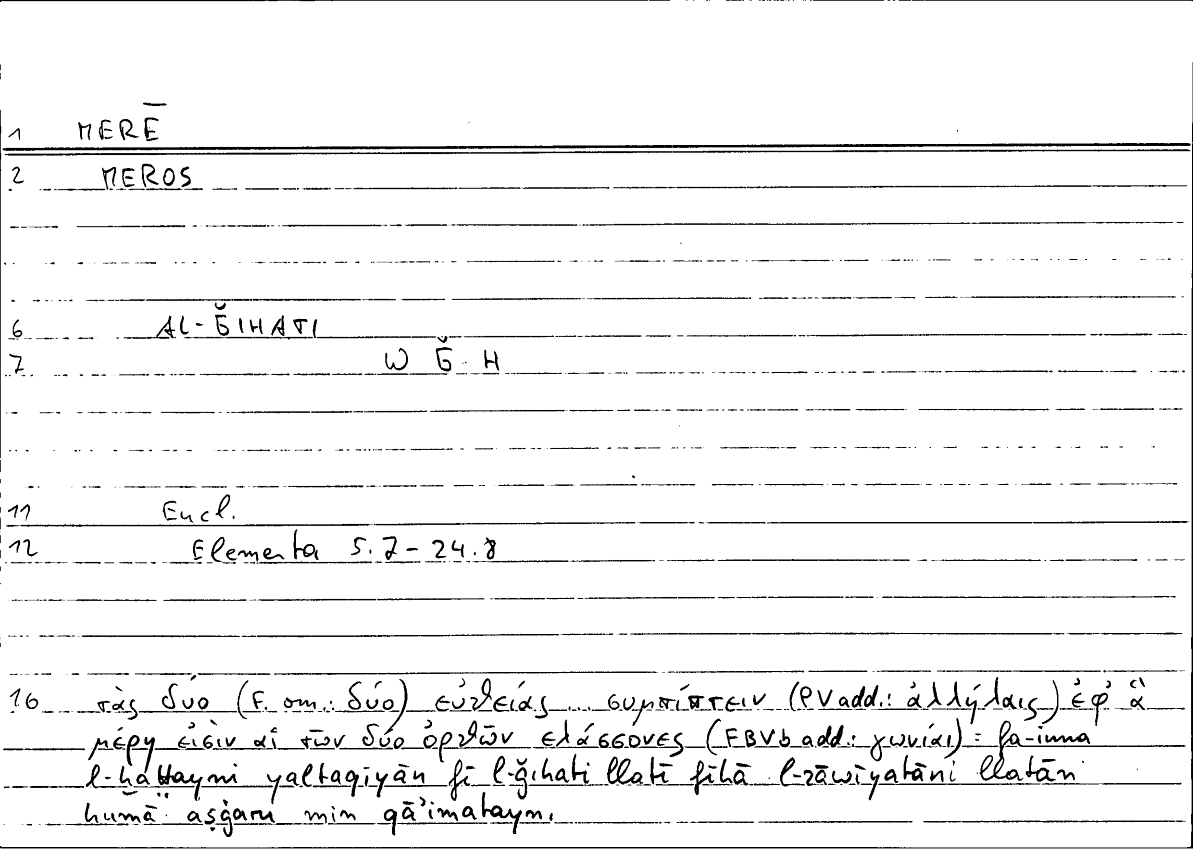 1 MERĒ
2 MEROS
6 AL-ǦIHATI
7 W Ǧ H
11 Eucl.
12 Elementa 5.7-24.8
16 τὰς δύο (F. om.: δύο) εὐθείας ... συμπίπτειν (PV add.: ἀλλήλαις) ἐφ' ἃ
μέρη εἰσὶν αἱ τῶν δύο ὀρθῶν ἐλάσσονες (FBVb add.: γωνίαι) = fa-inna
l-ḫaṭṭayni yaltaqiyān fī l-ǧihati llatī fīhā l-zāwiyatāni llatān
humā aṣġaru min qā'imatayn.